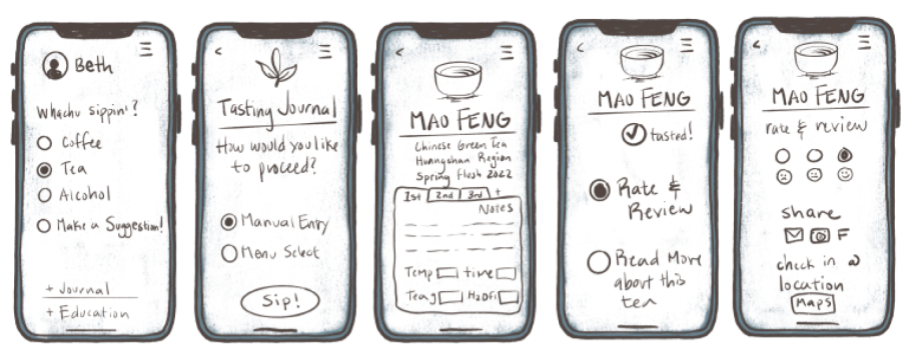 Beth
Whachu sippin'?
Coffee
Tea
Alcohol
Make a Suggestion!
+ Journal
+ Education
<
Tasting Journal
How would you like
to proceed?
Manual Entry
Menu Select
Sip!
<
MAO FENG
Chinese Green Tea
Huangshan Region
Spring Flush 2022
1st 2nd 3rd +
Notes
Temp time
Tea g H2O Fl
<
MAO FENG
tasted!
Rate &
Review
Read More
about this
tea
<
MAO FENG
rate & review
share
F
check in @
location
MAPS